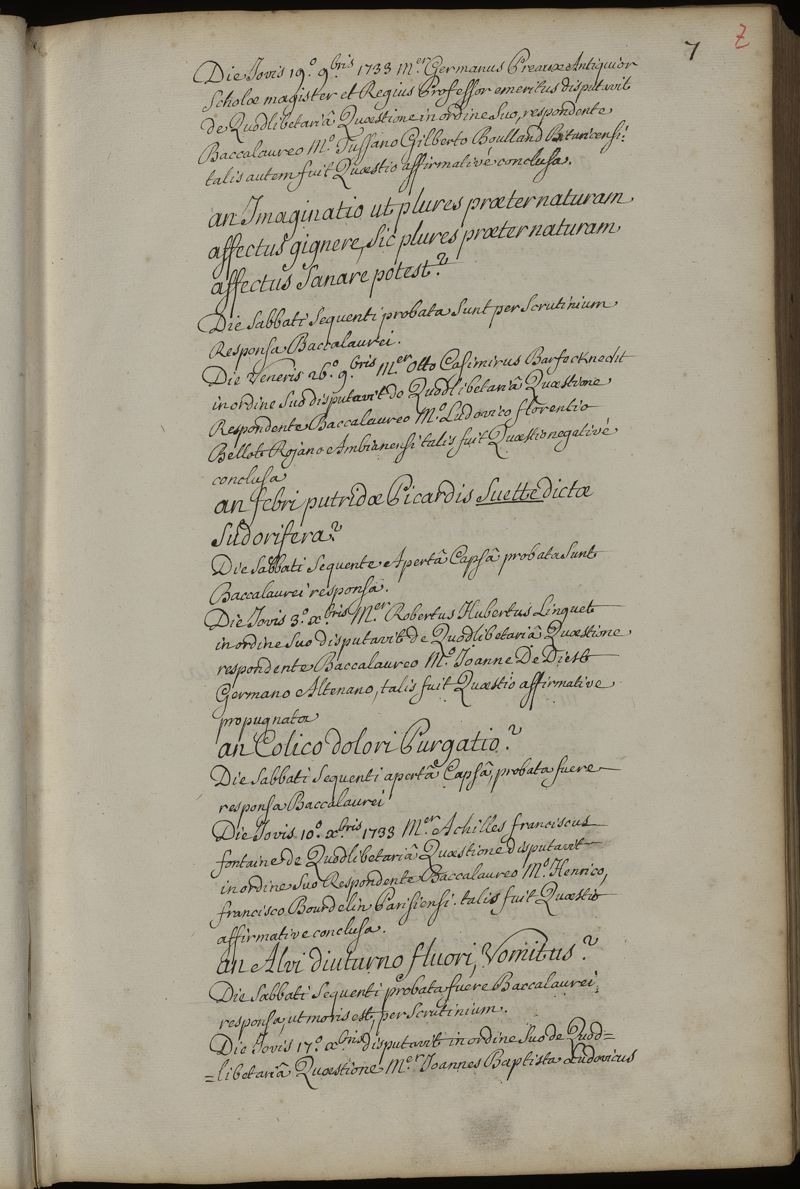 7 Z
Die Jovis 19.° 9.bris 1733 M.er Germanus Preaux Antiquior
Scholæ magister et Regius Professor emeritus disputavit
de Quodlibetariâ Quæstione in ordine Suo, respondente
Baccalaureo M.° Tussano Gilberto Boulland Bituricensi:
talis autem fuit Quæstio affirmativé conclusa.
an Imaginatio ut plures præter naturam
affectus gignere, Sic plures præter naturam
affectus Sanare potest?
Die Sabbati Sequenti probata Sunt per Scrutinium
Responsa Baccalaurei.
Die Veneris 26.° 9.bris M.er Otto Casimirus Barfocknedit
in ordine Suo disputavit de Quodlibetariâ Quæstione
Respondente Baccalaureo M.° Ludovico florentio
Bellot Rojano Ambianensi talis fuit Quæstio negativé
conclusa
an febri putridæ Picardis Suette dictæ
Sudorifera?
Die Sabbati Sequente Apertâ Capsâ probata Sunt
Baccalaurei responsa.
Die Jovis 3.° x.bris M.er Robertus Hubertus Linguet
in ordine Suo disputavit de Quodlibetariâ Quæstione
respondente Baccalaureo M.° Joanne De Diest
Germano Altenano, talis fuit Quæstio affirmative
propugnata
an Colico dolori Purgatio?
Die Sabbati Sequenti apertâ Capsâ, probata fuere
responsa Baccalaurei
Die Jovis 10.° x.bris 1733 M.er Achilles franciscus
fontaine de Quodlibetariâ Quæstione disputavit
in ordine Suo Respondente Baccalaureo M.° Henrico,
francisco Bourdelin Parisiensi. talis fuit Quæstio
affirmative conclusa.
an Alvi diuturno fluori, Vomitus?
Die Sabbati Sequenti probata fuere Baccalaurei
responsa, ut moris est, per Scrutinium.
Die Jovis 17.° x.bris disputavit in ordine Suo de Quod=
=libetariâ Quæstione M.er Joannes Baptista Ludovicus